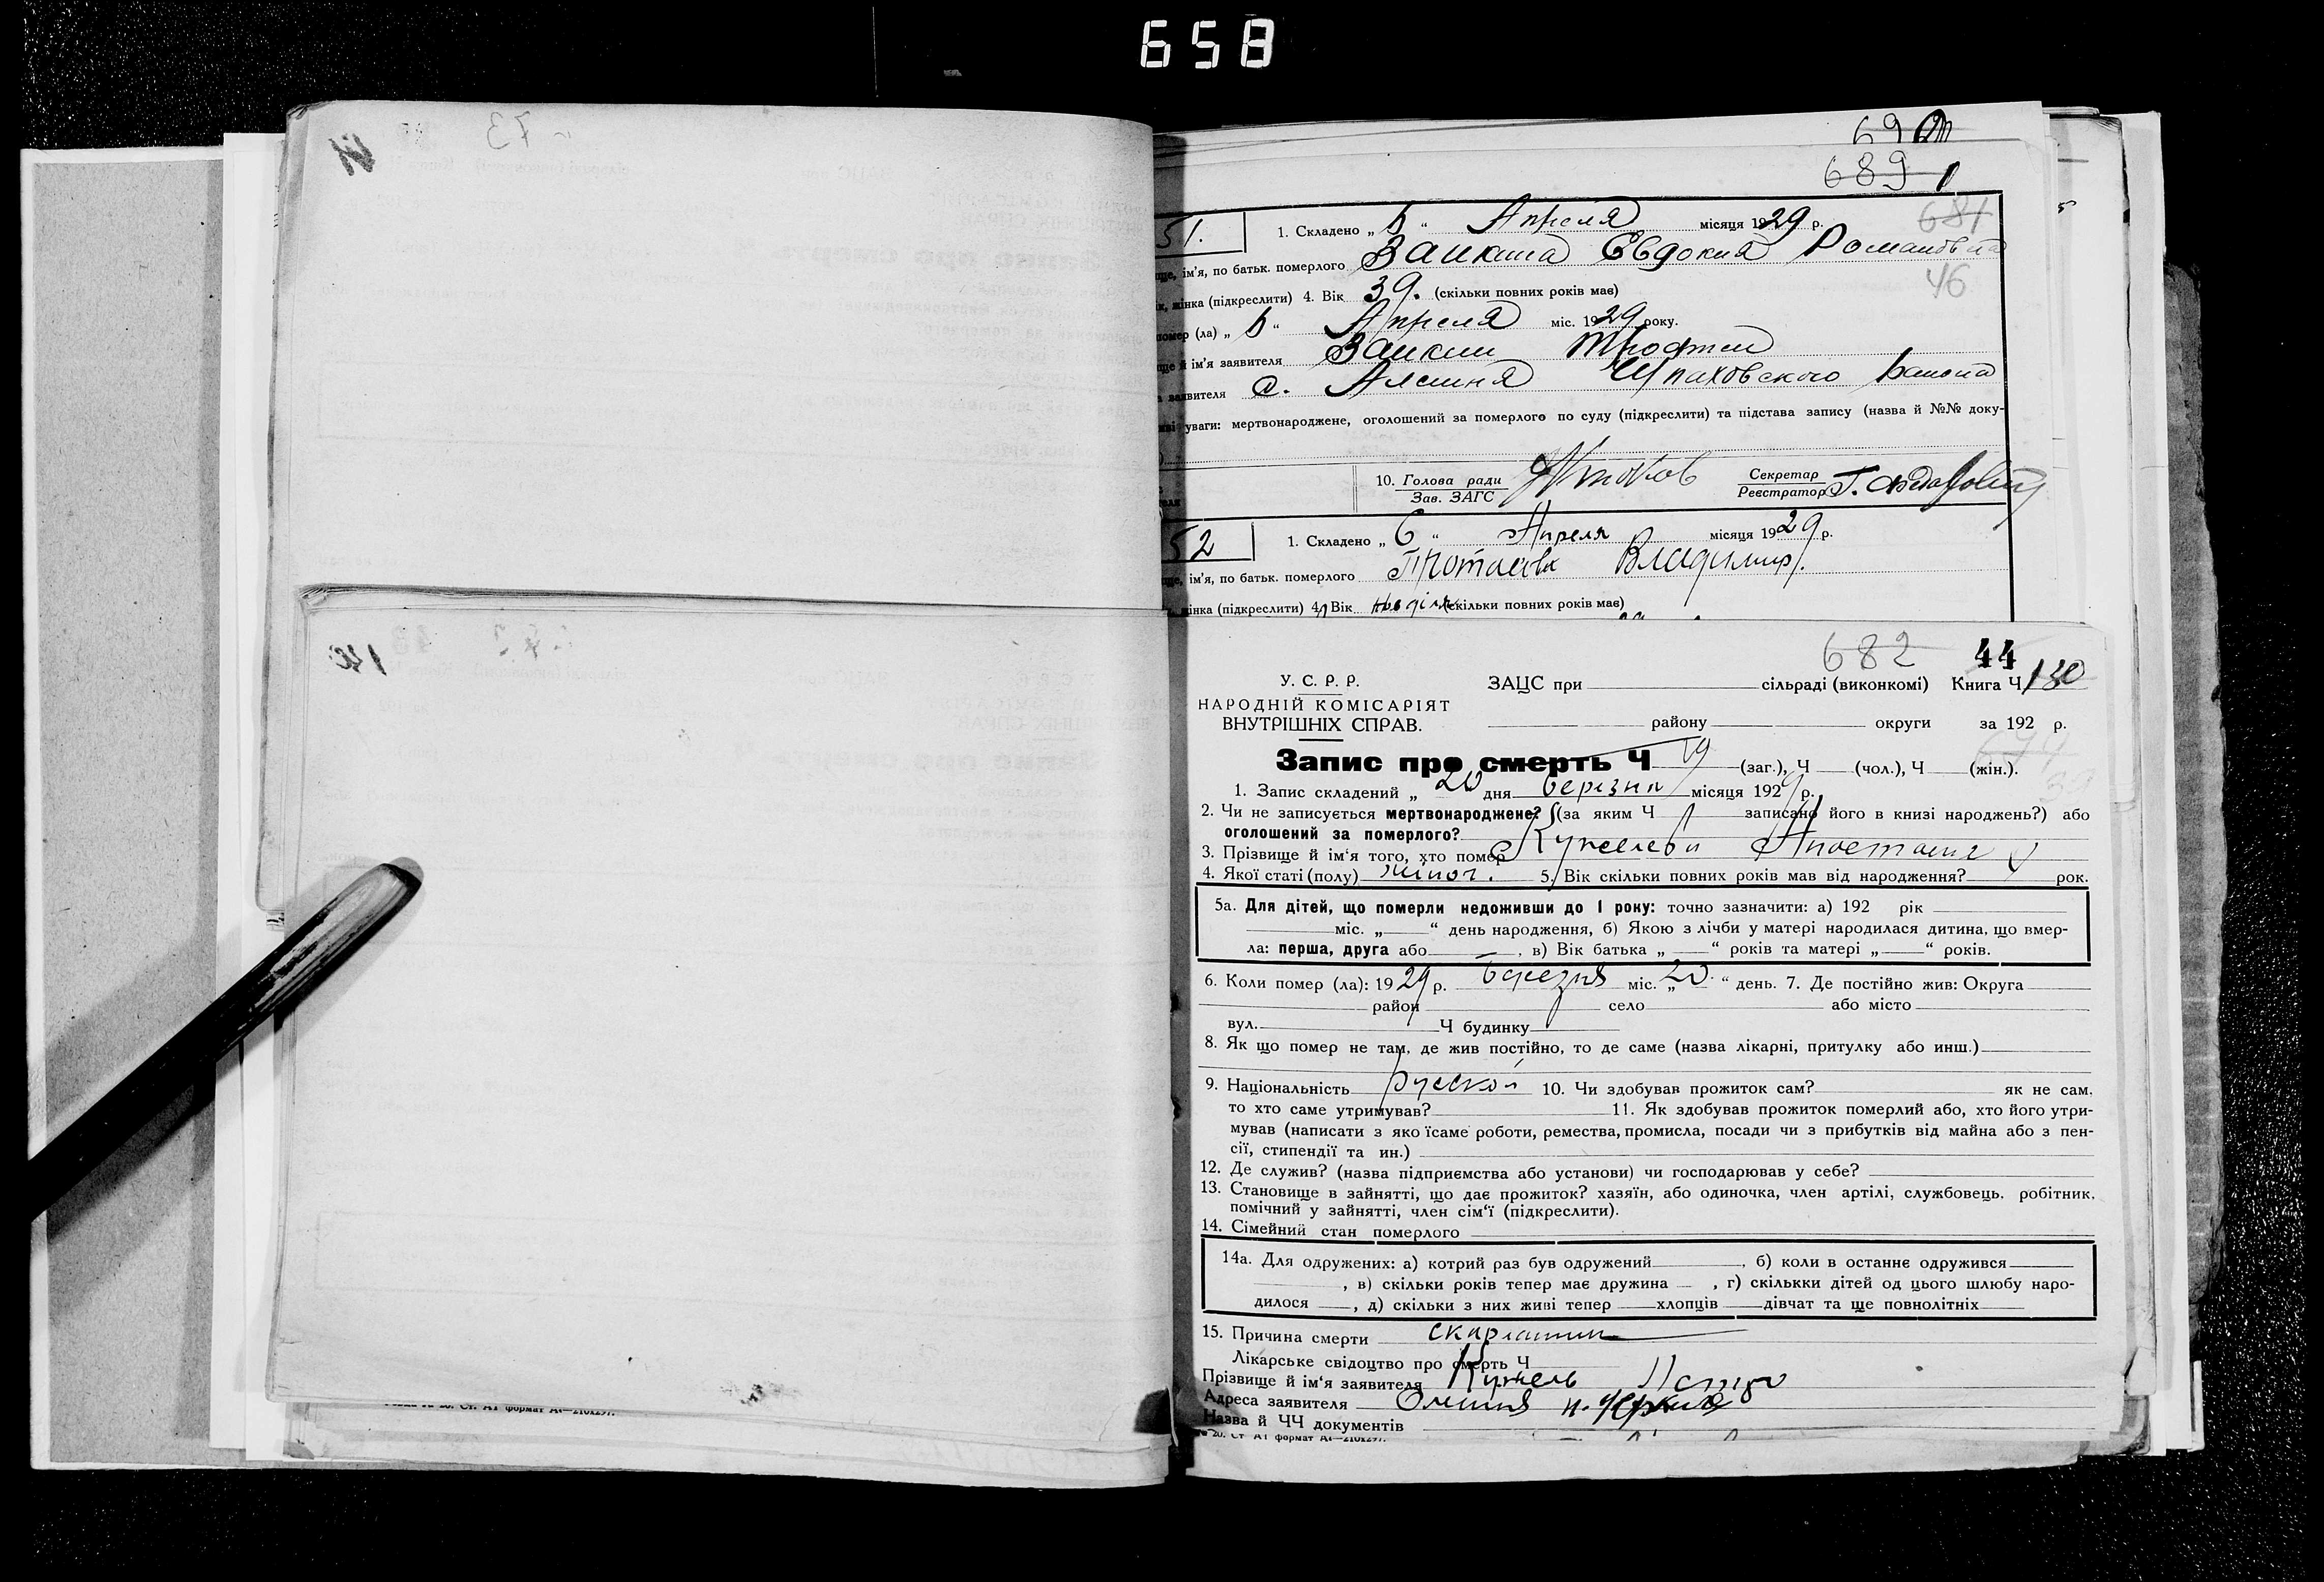 658
69
689
681
51. 1. Складено „ 6 “ Апреля місяця 1929 р.
ще, ім'я, по батьк. померлого Заикина Евдокия Романовна
46
жінка (підкреслити) 4. Вік 39. (скільки повних років має)
помер (ла) „ 6 “ Апреля міс. 1929 року.
ще й ім'я заявителя Заикин Трофим
заявителя с. Алешня
уваги: мертвонароджене, оголошений за померлого по суду (підкреслити) та підстава запису (назва й №№ доку-
10. Голова ради Секретар
Зав. ЗАГС Реєстратор
52 1. Складено „ 6 “ Апреля місяця 1929 р.
ще, ім'я, по батьк. померлого Протасов Владимир
жінка (підкреслити) 4. Вік (скільки повних років має)
682 44
У. С. Р. Р. ЗАЦС при сільраді (виконкомі) Книга Ч 130
НАРОДНІЙ КОМІСАРІЯТ
ВНУТРІШНІХ СПРАВ. району округи за 192 р.
Запис про смерть Ч 19 (заг.), Ч (чол.), Ч (жін.).
1. Запис складений „ 20 дня березня місяця 1929 р.
2. Чи не записується мертвонароджене? (за яким Ч записано його в книзі народжень?) або
оголошений за померлого?
3. Прізвище й ім'я того, хто помер Кужелева Анастасия
4. Якої статі (полу) жіноч. 5. Вік скільки повних років мав від народження? рок.
5а. Для дітей, що померли недоживши до 1 року: точно зазначити: а) 192 рік
міс. „ “ день народження, б) Якою з лічби у матері народилася дитина, що вмер-
ла: перша, друга або , в) Вік батька „ “ років та матері „ “ років.
6. Коли помер (ла): 1929 р. березня міс. „ 20 “ день. 7. Де постійно жив: Округа
район село або місто
вул. Ч будинку
8. Як що помер не там, де жив постійно, то де саме (назва лікарні, притулку або инш.)
9. Національність руской 10. Чи здобував прожиток сам? як не сам,
то хто саме утримував? 11. Як здобував прожиток померлий або, хто його утри-
мував (написати з яко їсаме роботи, ремества, промисла, посади чи з прибутків від майна або з пен-
сії, стипендії та ин.)
12. Де служив? (назва підприємства або установи) чи господарював у себе?
13. Становище в зайнятті, що дає прожиток? хазяїн, або одиночка, член артілі, службовець, робітник,
помічний у зайнятті, член сім'ї (підкреслити).
14. Сімейний стан померлого
14а. Для одружених: а) котрий раз був одружений , б) коли в останнє одружився
, в) скільки років тепер має дружина , г) скількки дітей од цього шлюбу наро-
дилося , д) скільки з них живі тепер хлопців дівчат та ще повнолітніх
15. Причина смерти скарлатина
Лікарське свідоцтво про смерть Ч
Прізвище й ім'я заявителя Кужель
Адреса заявителя
Назва й ЧЧ документів